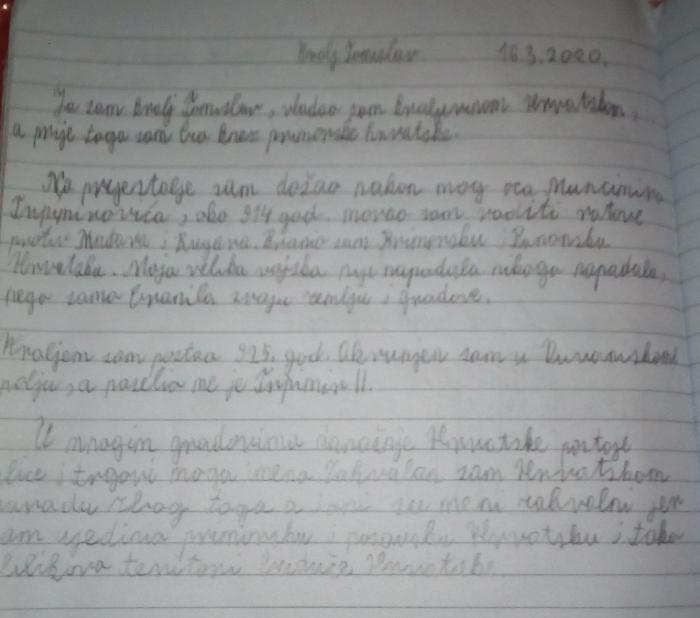 Kralj Tomislav 16.3.2020.
Ja sam kralj Tomislav, vladao sam kraljevinom Hrvatskom,
a prije toga sam bio knez primorske hrvatske.
Na prijestolje sam došao nakon mog oca Muncimira
Trpimirovića, oko 914 god. morao sam voditi ratove
protiv Mađara i Bugara. Branio sam Primorsku i Panonsku
Hrvatsku. Moja velika vojska nije napadala nikoga napadala,
nego samo branila svoju zemlju i gradove.
Kraljem sam postao 925. god. Okrunjen sam u Duvanjskom
polju, a me je Trpimir II.
U mnogim gradovima današnje Hrvatske postoje
lice i trgovi moga imena Zahvalan sam Hrvatskom
narodu zbog toga a oni su meni zahvalni jer
am ujedinio primorsku i posavsku Hrvatsku i tako
teritorij buduće Hrvatske.